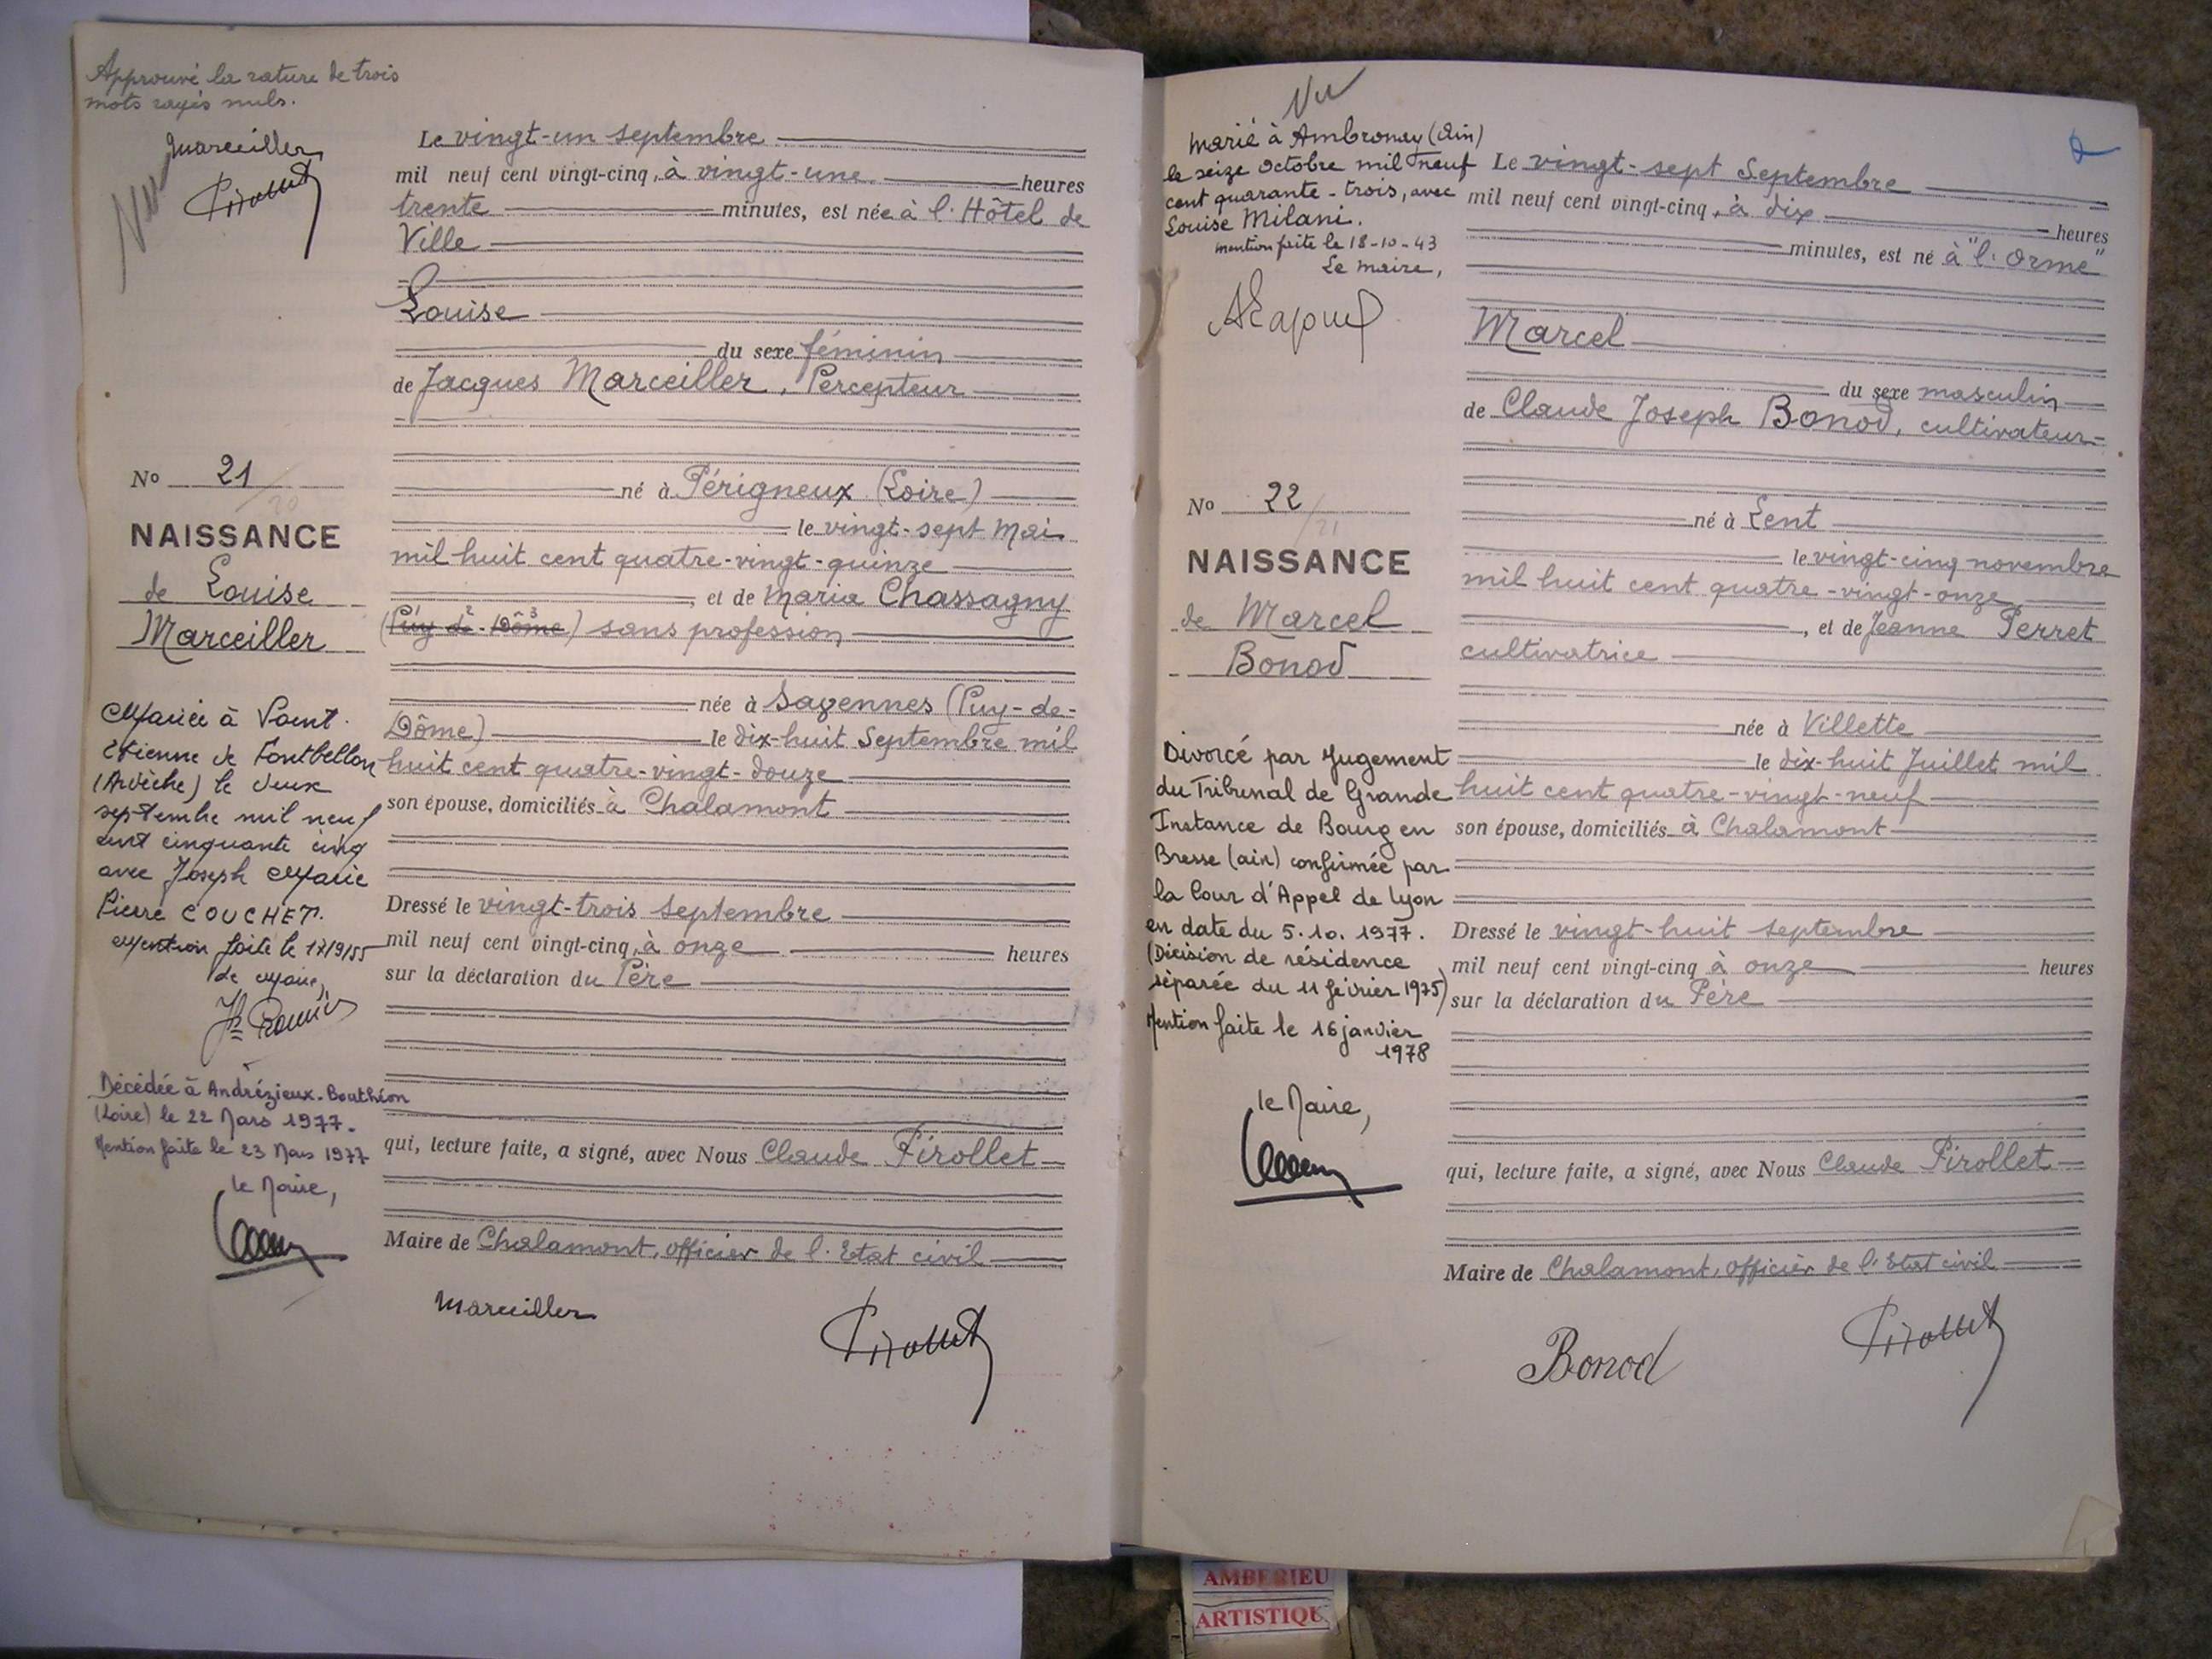 Approuvé la rature de trois
mots rayés nuls.
Marceiller
Pirollet
Vu
Le vingt-un septembre
mil neuf cent vingt-cinq, à vingt-une heures
trente minutes, est née à l'Hôtel de
Ville
Louise
du sexe féminin
de Jacques Marceiller, Percepteur
né à Périgneux (Loire)
le vingt-sept Mai
mil huit cent quatre-vingt-quinze
, et de Maria Chassagny
(Puy de Dôme) sans profession
née à Savennes (Puy-de-
Dôme) le dix-huit Septembre mil
huit cent quatre-vingt-douze
son épouse, domiciliés à Chalamont
Dressé le vingt-trois septembre
mil neuf cent vingt-cinq, à onze heures
sur la déclaration du Père
qui, lecture faite, a signé, avec Nous Claude Pirollet
Maire de Chalamont, officier de l'Etat civil
Marceiller
Pirollet
No 21
20
NAISSANCE
de Louise
Marceiller
Mariée à Saint
Etienne de Fontbellon
(Ardèche) le deux
septembre mil neuf
cent cinquante cinq
avec Joseph Marie
Pierre COUCHET.
Mention faite le 17/9/55
Le Maire,
Décédée à Andrézieux-Bouthéon
(Loire) le 22 Mars 1977.
Mention faite le 23 Mars 1977
le Maire,
Vu
Marié à Ambronay (Ain)
le seize Octobre mil neuf
cent quarante-trois, avec
Louise Milani.
mention faite le 18-10-43
Le maire,
Le vingt-sept Septembre
mil neuf cent vingt-cinq, à dix heures
minutes, est né à "l'Orme"
Marcel
du sexe masculin
de Claude Joseph Bonod, cultivateur
né à Lent
le vingt-cinq novembre
mil huit cent quatre-vingt-onze
, et de Jeanne Perret
cultivatrice
née à Villette
le dix-huit Juillet mil
huit cent quatre-vingt-neuf
son épouse, domiciliés à Chalamont
Dressé le vingt-huit septembre
mil neuf cent vingt-cinq à onze heures
sur la déclaration du Père
qui, lecture faite, a signé, avec Nous Claude Pirollet
Maire de Chalamont, officier de l'Etat civil
Bonod
Pirollet
No 22
21
NAISSANCE
de Marcel
Bonod
Divorcé par Jugement
du Tribunal de Grande
Instance de Bourg en
Bresse (ain) confirmée par
la Cour d'Appel de Lyon
en date du 5.10.1977.
(Décision de résidence
séparée du 11 février 1975)
Mention faite le 16 janvier
1978
le Maire,
AMBERIEU
ARTISTIQU